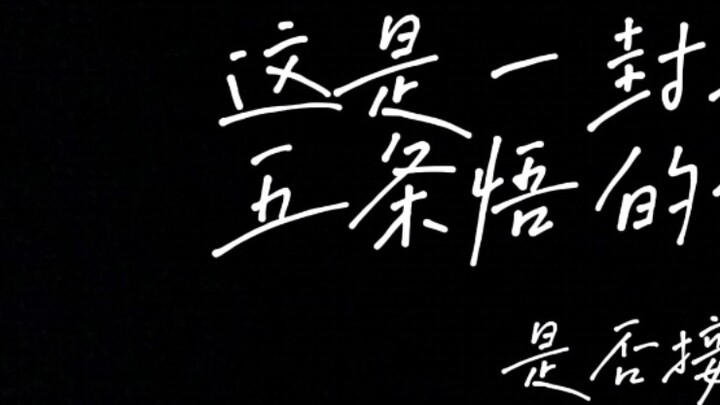 这是一封
五条悟的
是否接